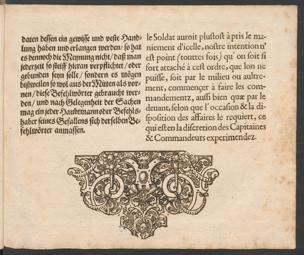 daten dessen ein gewisse und veste Hand-
lung haben und erlangen werden/ so hat
es dennoch die Meynung nicht/ daß man
jederzeit so steiff hieran verpflichtet/ oder
gebunden seyn solle/ sondern es mögen
bißweilen so wol auß der Mitten als vor-
nen/ diese Befehlwörter gebraucht wer-
den/ und nach Gelegenheit der Sachen
mag ein jeder Hauptmann oder Befehls-
haber seines Gefallens sich derselben Be-
fehlwörter anmassen.
le Soldat auroit plustost à pris le ma-
niement d'icelle, nostre intention n'
est point (toutes fois) qu' on soit si
fort attaché à cest ordre, que lon ne
puisse, soit par le milieu ou aultre-
ment, commençer à faire les com-
mandementz, aussi bien que par le
devant, selon que l'occasion & la di-
sposition des affaires le requiert, ce
qui est en la discretion des Capitaines
& Commandeurs experimendez.